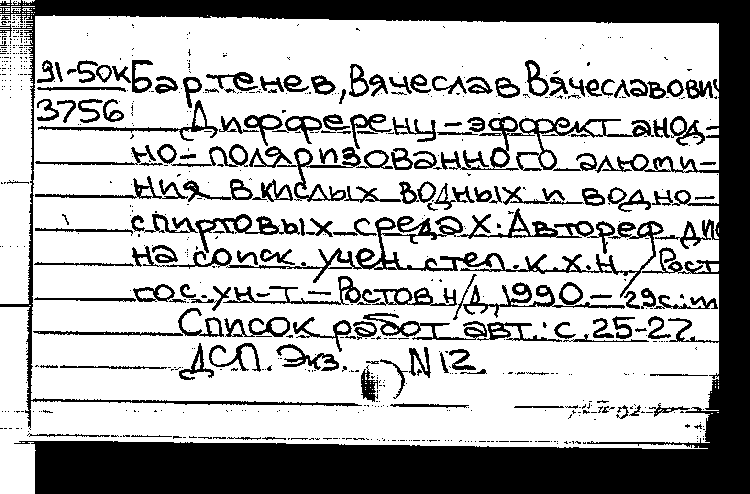 91-50к Бартенев, Вячеслав Вячеславович
3756 Дифференц-эффект анод-
но-поляризованного алюми-
ния в кислых водных и водно-
спиртовых средах: Автореф. дис
на соиск. учен. степ. к.х.н. / Рост
гос. ун-т. – Ростов н/Д, 1990. – 29с.:
Список работ авт.: с. 25-27.
ДСП. Экз. N 12.